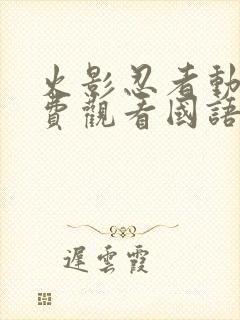 火影忍者動
費觀看國語
遲雲霞